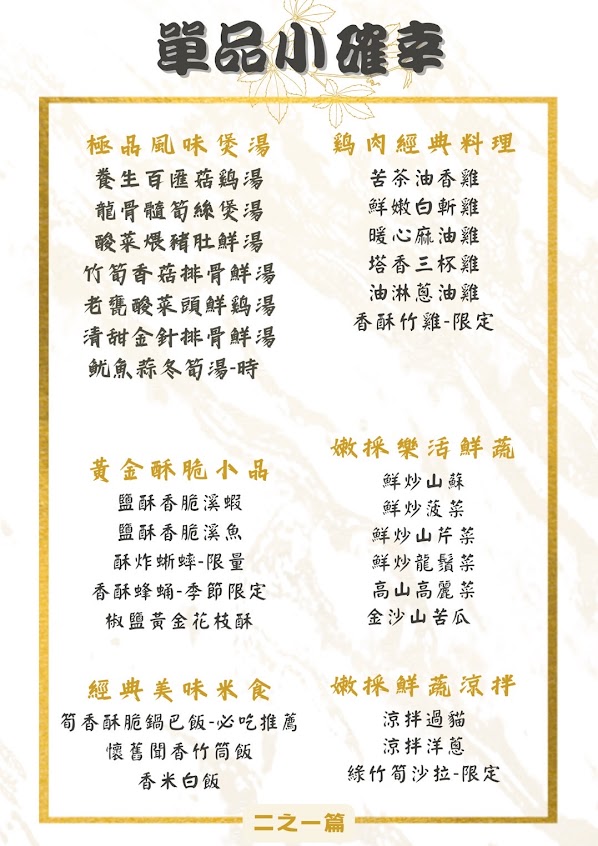 單品小確幸
極品風味煲湯
養生百匯菇鷄湯
龍骨髓筍絲煲湯
酸菜煨豬肚鮮湯
竹筍香菇排骨鮮湯
老甕酸菜頭鮮鷄湯
清甜金針排骨鮮湯
魷魚蒜冬筍湯-時
鷄肉經典料理
苦茶油香雞
鮮嫩白斬雞
暖心麻油雞
塔香三杯雞
油淋蔥油雞
香酥竹雞-限定
黃金酥脆小品
鹽酥香脆溪蝦
鹽酥香脆溪魚
酥炸蜥蟀-限量
香酥蜂蛹-季節限定
椒鹽黃金花枝酥
嫩採樂活鮮蔬
鮮炒山蘇
鮮炒菠菜
鮮炒山芹菜
鮮炒龍鬚菜
高山高麗菜
金沙山苦瓜
經典美味米食
筍香酥脆鍋巴飯-必吃推薦
懷舊聞香竹筒飯
香米白飯
嫩採鮮蔬涼拌
涼拌過貓
涼拌洋蔥
綠竹筍沙拉-限定
二之一篇